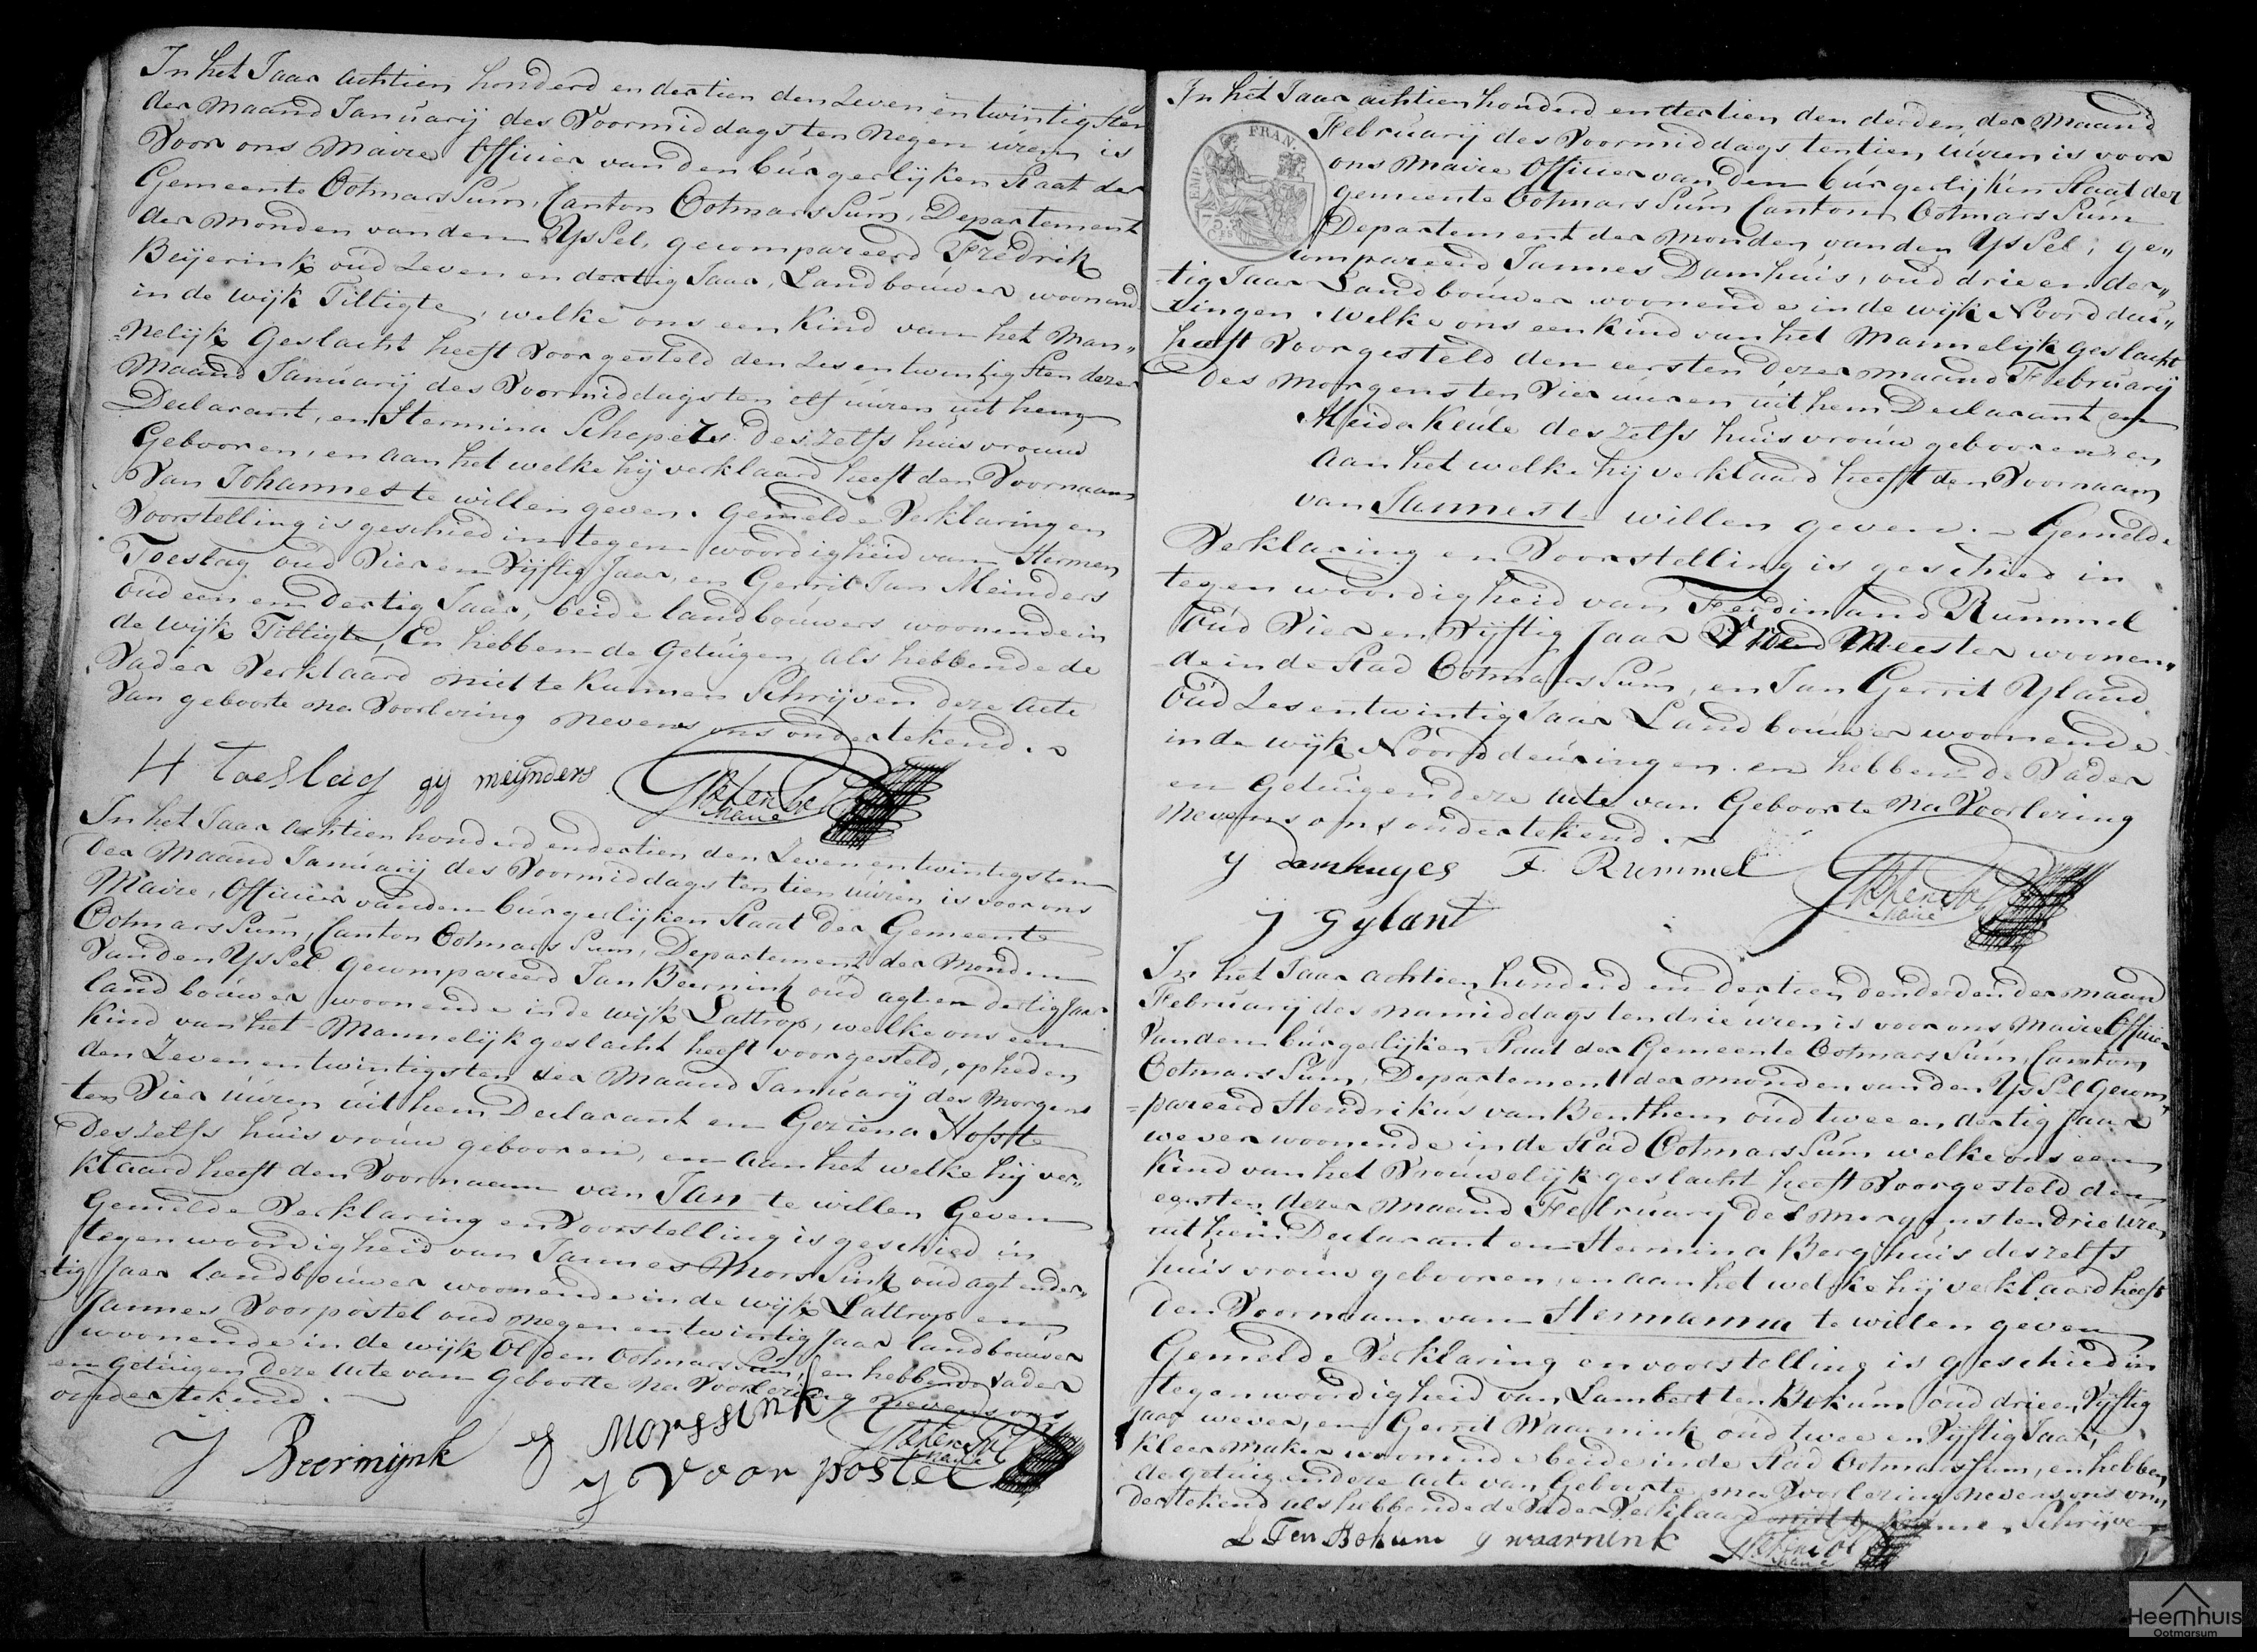 In het Jaar achtien honderd en dertien den Zeven entwintigsten
der Maand Januarij des Voormiddags ten Negen uren is
Voor ons Maire Officier van den burgerlijken Staat der
Gemeente Ootmarssum, Canton Ootmarssum, Departement
der Monden van den Yssel, gecompareerd Fredrik
Beijerink oud Zeven en dertig Jaar, Landbouwer woonend
in de wijk Tiltigte, welke ons een Kind van het Man„
„nelijk Geslacht heeft Voorgesteld den Zesentwintigsten dezer
Maand Januarij des Voormiddags ten olf uuren uit hem
Declarant, en Hermina Schepers deszelfs huisvrouw
Gebooren, en aan het welke hij verklaard heeft den Voornaam
Van Johannes te willen geven. Gemelde Verklaring en
Voorstelling is geschied in tegenwoordigheid van Hermen
Toeslag oud Vier en Vijftig Jaar, en Gerrit Jan Meinders
oud een en dertig Jaar, beide landbouwers woonende in
de wijk Tiltigte, En hebben de Getuigen, als hebbende de
Vader Verklaard niet te Kunnen Schrijven deze Acte
Van geboorte na Voorlezing nevens ons ondertekend.
H toeslag gj meijnders
Maire
In het Jaar achtien honderd endertien den Zeven entwintigsten
der Maand Januarij des Voormiddags ten tien uuren is voor ons
Maire, Officier van den burgerlijken Staat der Gemeente
Ootmarssum, Canton Ootmarssum, Departement der Monden
Van den Yssel gecompareerd Jan Beernink oud agt en dertig Jaar
landbouwer woonende in de wijk Lattrop, welke ons een
Kind van het Mannelijk geslacht heeft voorgesteld, op heden
den Zeven entwintigsten der Maand Januarij des Morgens
ten Vier uuren uit hem Declarant en Geziena Hofste
deszelfs huisvrouw gebooren, en aan het welke hij ver„
klaard heeft den Voornaam van Jan te willen Geven
Gemelde Verklaring en Voorstelling is geschied in
tegenwoordigheid van Jannes Morssink oud agt ender„
„tig Jaar landbouwer woonende in de wijk Lattrop en
Jannes Voorpostel oud negen entwintig Jaar landbouwer
woonende in de wijk Olden Ootmarssum, en hebben de Vader
en getuigen deze Acte van Geboorte na Voorlezing nevens ons
ondertekend.
J Beernijnk J Morssink
J Voorpostel
Maire
In het Jaar achtien honderd endertien den derden der Maand
EMP. FRAN.
75
Februarij des Voormiddags ten tien uuren is voor
ons Maire Officier van den burgerlijken Staat der
gemeente Ootmarssum Canton Ootmarssum
Departement der Monden van den Yssel, ge„
compareerd Jannes Damhuis, oud drie en der„
„tig Jaar Landbouwer woonende in de wijk Noorddeu„
„ringen. Welke ons een Kind van het Mannelijk geslacht
heeft Voorgesteld den eersten dezer maand Februarij
des Morgens ten Vier uuren uit hem Declarant en
Aleida Keule deszelfs huisvrouw gebooren en
aan het welke hij verklaard heeft den Voornaam
van Jannes te willen geven. – Gemelde
Verklaring en Voorstelling is geschied in
tegenwoordigheid van Ferdinand Rummel
Oud Vier en Vijftig Jaar Vroed Meester woonen„
de in de Stad Ootmarssum, en Jan Gerrit Yland
Oud Zes entwintig Jaar Landbouwer woonende
in de wijk Noorddeuringen. en hebben de Vader
en Getuigen deze Acte van Geboorte Na Voorlezing
Nevens ons ondertekend.
J Damhuyes F. Rummel
J Gylant
Maire
In het Jaar achtien honderd en dertien den derden der maand
Februarij des namiddags ten drie uren is voor ons Maire Officier
Van den burgerlijken Staat der Gemeente Ootmarssum, Canton
Ootmarssum, Departement der monden van den Yssel Gecom
„pareerd Hendrikus van Benthem oud twee en dertig Jaar
wever woonende in de Stad Ootmarssum welke ons een
Kind van het Vrouwelijk geslacht heeft Voorgesteld den
eersten dezer maand Februarij des morgens ten drie uren
uit hem Declarant en Hermina Berghuis deszelfs
huisvrouw gebooren, en aan het welke hij verklaard heeft
den Voornaam van Hermanna te willen geven
Gemelde Verklaring en voorstelling is geschied in
tegenwoordigheid van Lambert ten Bokum oud drie en Vijftig
Jaar wever, en Gerrit Waarnink oud twee en Vijftig Jaar,
Kleermaker woonende beide in de Stad Ootmarssum, en hebben
de getuigen deze Acte van Geboorte na Voorlezing nevens ons on
dertekend als hebbende de Vader Verklaard niet te Kunnen Schrijven
L Ten Bokum G waarnink
Maire
Heemhuis
Ootmarsum